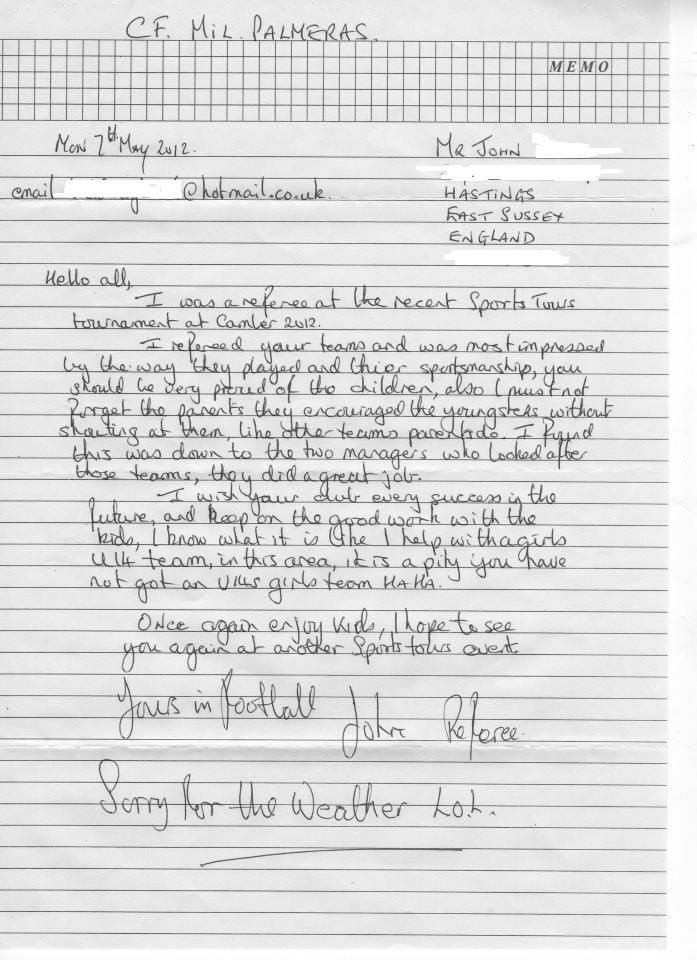 C.F. MIL. PALMERAS.
MEMO
Mon 7th May 2012.
Mr JOHN
email @hotmail.co.uk.
HASTINGS
EAST SUSSEX
ENGLAND
Hello all,
I was a referee at the recent Sports Tours
tournament at Camber 2012.
I refereed your teams and was most impressed
by the way they played and thier sportsmanship, you
should be very proud of the children, also I must not
forget the parents they encouraged the youngsters without
shouting at them, like other teams parents do. I found
this was down to the two managers who looked after
those teams, they did a great job.
I wish your club every success in the
future, and keep on the good work with the
kids, I know what it is like I help with a girls
U14 team, in this area, it is a pity you have
not got an U14s girls team HA HA.
Once again enjoy kids, I hope to see
you again at another Sports tours event.
Yours in Football John Referee.
Sorry for the Weather L.o.L.